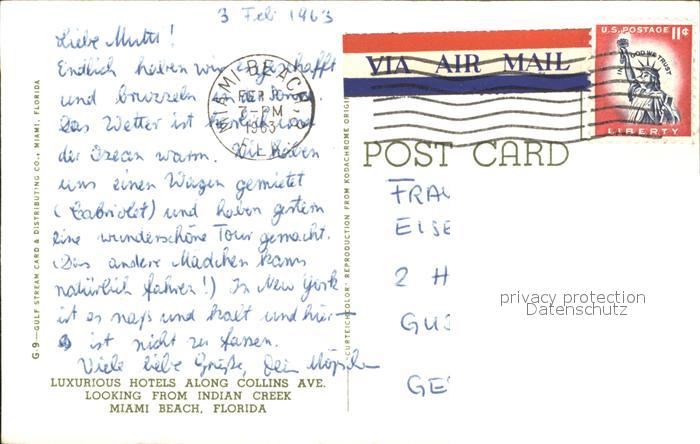 3 Feb 1963
Liebe Mutti!
Endlich haben wir es geschafft
und bruzzeln in der Sonne.
Das Wetter ist herrlich und
der Ozean warm. Wir haben
uns einen Wagen gemietet
(Cabriolet) und haben gestern
eine wunderschöne Tour gemacht.
(Das andere Mädchen kann
natürlich fahren!) In New York
ist es naß und kalt und hier –
es ist nicht zu fassen.
Viele liebe Grüße, Dein
LUXURIOUS HOTELS ALONG COLLINS AVE.
LOOKING FROM INDIAN CREEK
MIAMI BEACH, FLORIDA
G-9—GULF STREAM CARD & DISTRIBUTING CO., MIAMI, FLORIDA
"CURTEICHCOLOR" REPRODUCTION FROM KODACHROME ORIGI
MIAMI BEACH
FEB
7-PM
1963
FLA.
VIA AIR MAIL
U.S. POSTAGE 11¢
IN GOD WE TRUST
LIBERTY
POST CARD
FRAU
ELSE
2 H
GUS
GE
privacy protection
Datenschutz